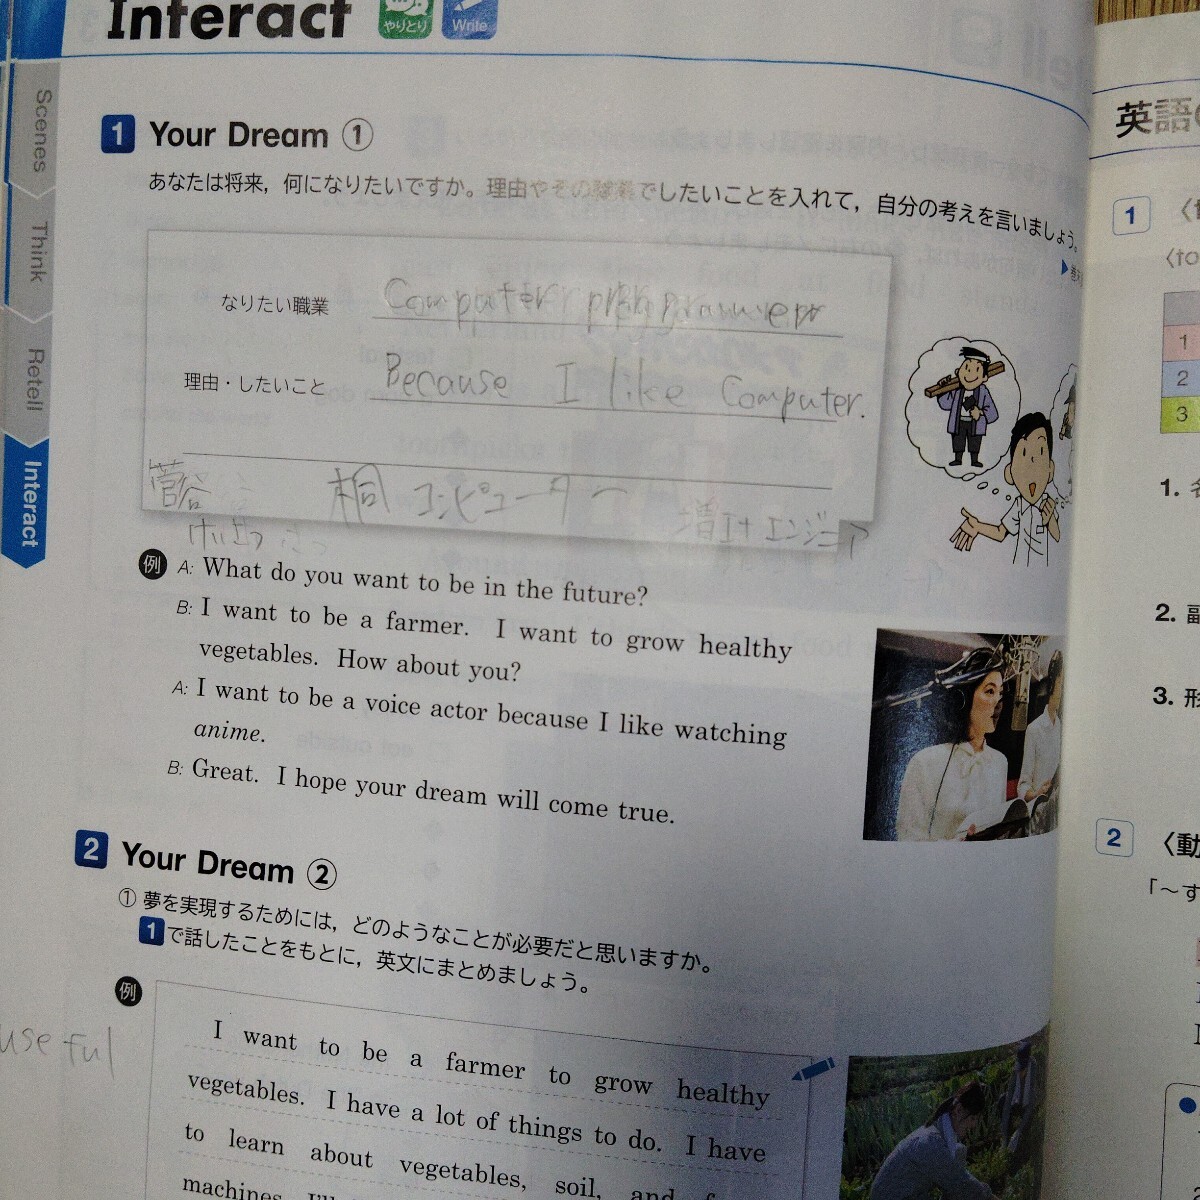 Interact やりとり Write
Scenes
Think
Retell
Interact
1 Your Dream ①
あなたは将来，何になりたいですか。理由やその職業でしたいことを入れて，自分の考えを言いましょう。
なりたい職業 Computer programmer
理由・したいこと Because I like Computer.
菅谷 桐 コンピューター エンジニア
例 A: What do you want to be in the future?
B: I want to be a farmer. I want to grow healthy
vegetables. How about you?
A: I want to be a voice actor because I like watching
anime.
B: Great. I hope your dream will come true.
2 Your Dream ②
① 夢を実現するためには，どのようなことが必要だと思いますか。
1で話したことをもとに，英文にまとめましょう。
例
useful
I want to be a farmer to grow healthy
vegetables. I have a lot of things to do. I have
to learn about vegetables, soil, and
machines. I'll
英語
1
〈to
1
2
3
1.
2. 副
3. 形
2 〈動
「～す